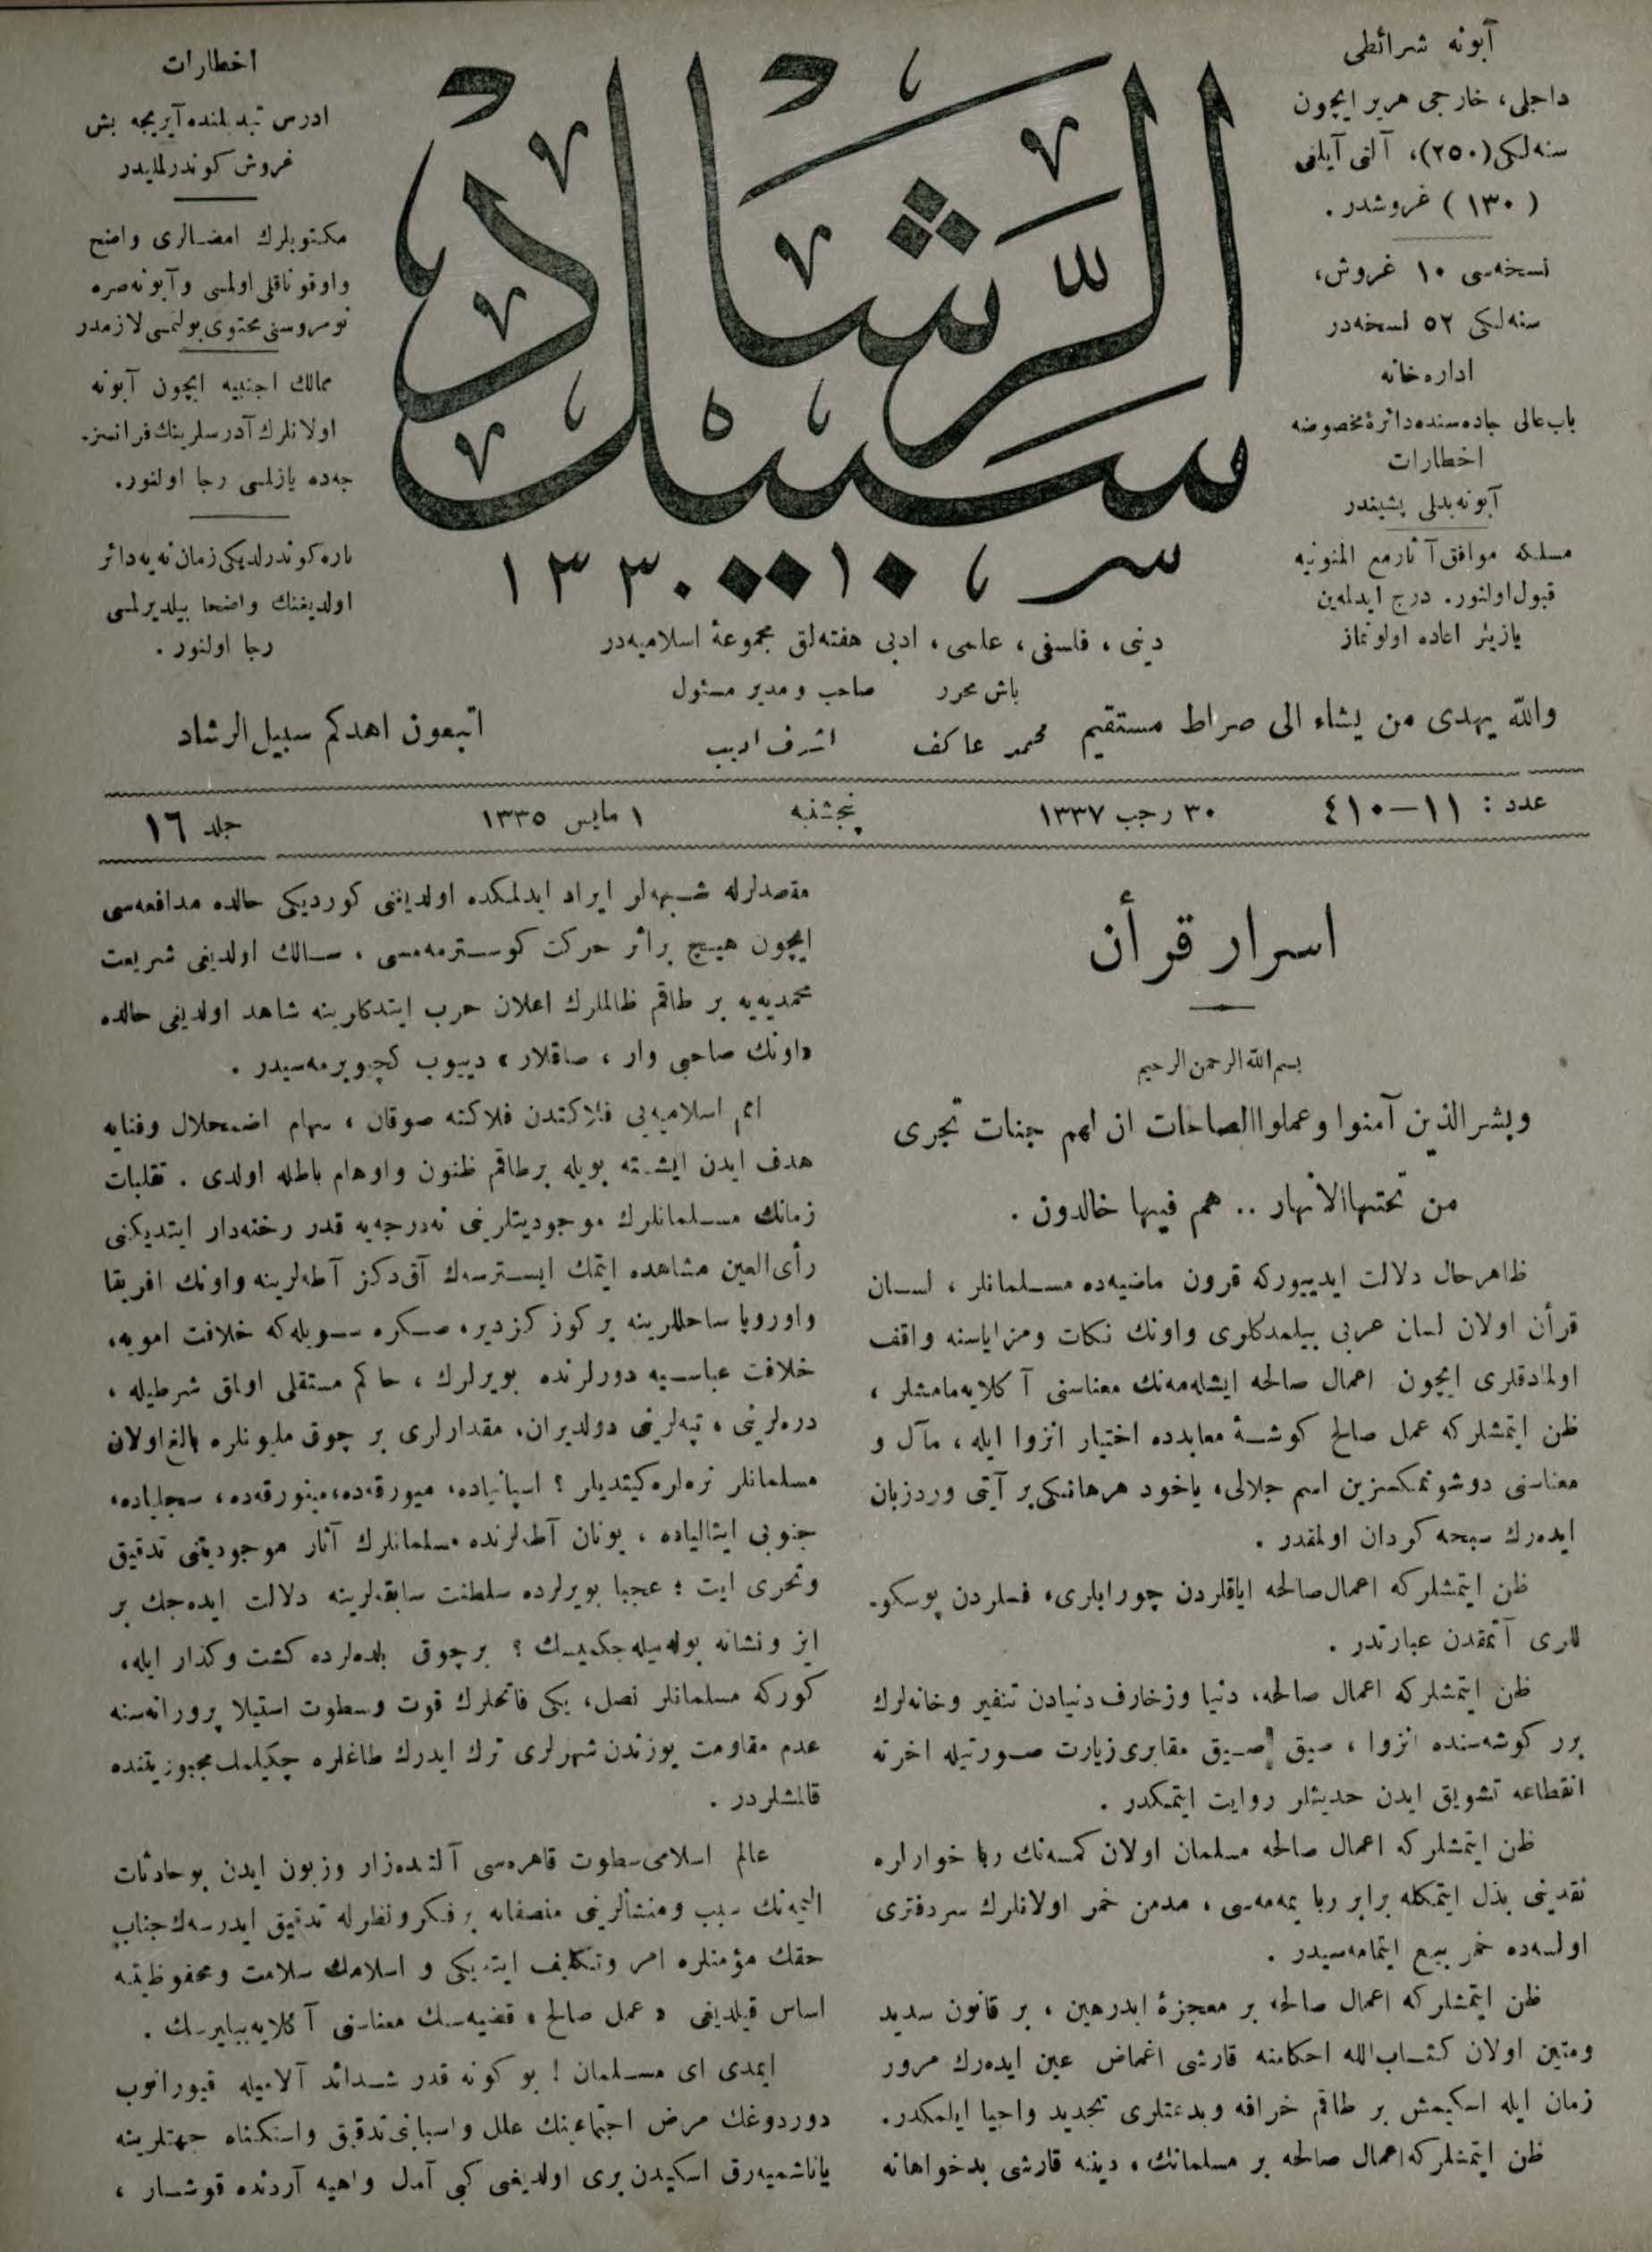 آبونه شرائطی
داخلی، خارجی هر یر ایچون
سنه‌لکی (٢٥٠)، آلتی آیلغی
(١٣٠) غروشدر.
نسخه‌سی ١٠ غروش،
سنه‌لکی ٥٢ نسخه‌در
اداره‌خانه
باب عالی جاده‌سنده دائرۀ مخصوصه
اخطارات
آبونه بدلی پشیندر
مسلکه موافق آثار مع الممنونیه
قبول اولنور. درج ایدلمه‌ین
یازیلر اعاده اولونماز
سبیل الرشاد
سر ١٠ ١٣٣٠
دینی، فلسفی، علمی، ادبی هفته‌لق مجموعۀ اسلامیه‌در
باش محرر
محمد عاکف
صاحب و مدیر مسئول
اشرف ادیب
اخطارات
ادرس تبدیلنده آیریجه بش
غروش کوندرلملیدر
مکتوبلرك امضالری واضح
واوقوناقلی اولمسی و آبونه صره
نومروسنی محتوی بولنمسی لازمدر
ممالك اجنبیه ایچون آبونه
اولانلرك آدرسلرینك فرانسز-
جه‌ده یازلمسی رجا اولنور.
پاره کوندرلدیکی زمان نه‌یه دائر
اولدیغنك واضحا بیلدیرلمسی
رجا اولنور.
والله یهدی من یشاء الی صراط مستقیم
اتبعون اهدکم سبیل الرشاد
عدد: ١١—٤١٠
٣٠ رجب ١٣٣٧
پنجشنبه
١ مایس ١٣٣٥
جلد ١٦
اسرار قرأن
بسم الله الرحمن الرحیم
وبشر الذین آمنوا وعملوا الصالحات ان لهم جنات تجری
من تحتها الانهار .. هم فیها خالدون.
ظاهر حال دلالت ایدییورکه قرون ماضیه‌ده مسلمانلر، لسان
قرأن اولان لسان عربی بیلمدکلری واونك نکات ومزایاسنه واقف
اولمادقلری ایچون اعمال صالحه ایشله‌مه‌نك معناسنی آکلایه‌مامشلر،
ظن ایتمشلرکه عمل صالح کوشۀ معابدده اختیار انزوا ایله، مآل و
معناسنی دوشونمکسزین اسم جلالی، یاخود هرهانکی بر آیتی ورد زبان
ایده‌رك سبحه کردان اولمقدر.
ظن ایتمشلرکه اعمال صالحه ایاقلردن چورابلری، فسلردن پوسکو-
للری آتمقدن عبارتدر.
ظن ایتمشلرکه اعمال صالحه، دنیا وزخارف دنیادن تنفیر وخانه‌لرك
برر کوشه‌سنده انزوا، صیق صیق مقابری زیارت صورتیله اخرته
انقطاعه تشویق ایدن حدیثلر روایت ایتمکدر.
ظن ایتمشلرکه اعمال صالحه مسلمان اولان کمسه‌نك ربا خوارلره
نقدینی بذل ایتمکله برابر ربا یمه‌مه‌سی، مدمن خمر اولانلرك سردفتری
اولسه‌ده خمر بیع ایتمامه‌سیدر.
ظن ایتمشلرکه اعمال صالحه بر معجزۀ ابدرهین، بر قانون سدید
ومتین اولان کتاب الله احکامنه قارشی اغماض عین ایده‌رك مرور
زمان ایله اسکیمش بر طاقم خرافه وبدعتلری تجدید واحیا ایلمکدر.
ظن ایتمشلرکه اعمال صالحه بر مسلمانك، دیننه قارشی بدخواهانه
مقصدلرله شبهه‌لر ایراد ایدلمکده اولدیغنی کوردیکی حالده مدافعه‌سی
ایچون هیچ بر اثر حرکت کوسترمه‌مسی، سالك اولدیغی شریعت
محمدیه‌یه بر طاقم ظالملرك اعلان حرب ایتدکلرینه شاهد اولدیغی حالده
«اونك صاحبی وار، صاقلار» دییوب کچیویرمه‌سیدر.
امم اسلامیه‌یی فلاکتدن فلاکته صوقان، سهام اضمحلال وفنایه
هدف ایدن ایشته بویله بر طاقم ظنون واوهام باطله اولدی. تقلبات
زمانك مسلمانلرك موجودیتلرینی نه‌درجه‌یه قدر رخنه‌دار ایتدیکنی
رأی العین مشاهده ایتمك ایسترسه‌ك آق دکز آطه‌لرینه واونك افریقا
واوروپا ساحللرینه بر کوز کزدیر، صکره سویله که خلافت امویه،
خلافت عباسیه دورلرنده بو یرلرك، حاکم مستقلی اولمق شرطیله،
دره‌لرینی، تپه‌لرینی دولدیران، مقدارلری بر چوق ملیونلره بالغ اولان
مسلمانلر نره‌لره کیتدیلر؟ اسپانیاده، میورقه‌ده، مینورقه‌ده، سجلیاده،
جنوبی ایتالیاده، یونان آطه‌لرنده مسلمانلرك آثار موجودیتنی تدقیق
وتحری ایت؛ عجبا بو یرلرده سلطنت سابقه‌لرینه دلالت ایده‌جك بر
ایز ونشانه بوله‌بیله‌جکمیسك؟ بر چوق بلده‌لرده کشت وکذار ایله،
کورکه مسلمانلر نصل، یکی فاتحلرك قوت وسطوت استیلا پرورانه‌سنه
عدم مقاومت یوزندن شهرلری ترك ایدرك طاغلره چکیلمك مجبوریتنده
قالمشلردر.
عالم اسلامی سطوت قاهره‌سی آلتنده زار وزبون ایدن بو حادثات
الیمه‌نك سبب ومنشألرینی منصفانه بر فکر ونظرله تدقیق ایدرسه‌ك جناب
حقك مؤمنلره امر وتکلیف ایتدیکی و اسلامك سلامت ومحفوظیتنه
اساس قیلدیغی «عمل صالح» قضیه‌سنك معناسنی آکلایه‌بیلیرسك.
ایمدی ای مسلمان! بو کونه قدر شدائد آلامیله قیورانوب
دوردوغك مرض اجتماعینك علل واسبابی تدقیق واستکناه جهتلرینه
یاناشمیه‌رق اسکیدن بری اولدیغی کبی آمال واهیه آردنده قوشار،